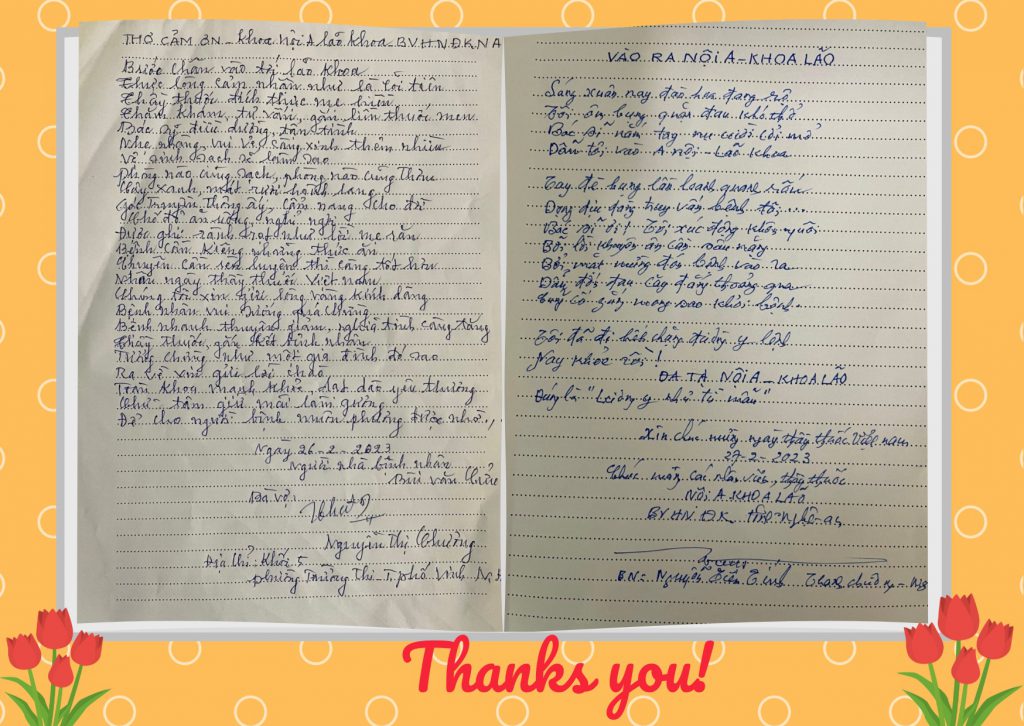 THƠ CẢM ƠN - Khoa Nội A lão Khoa - BVHNĐKNA
Bước chân vào tới lão khoa
Thực lòng cảm nhận như là cõi tiên
Thầy thuốc đích thực mẹ hiền
Thăm khám, tư vấn, gắn liền thuốc men
Bác sỹ điều dưỡng, tận tình
Nhẹ nhàng vui vẻ càng xinh thêm nhiều
Vệ sinh sạch sẽ làm sao
Phòng nào cũng sạch, phòng nào cũng thơm
Cây xanh, mát rượi hành lang
Góc truyền thông ấy, cẩm nang cho đời
Chế độ ăn uống, nghỉ ngơi
Được ghi rành rọt như lời mẹ răn
Bệnh cần kiêng những thức ăn
Chuyên cần rèn luyện thì càng tốt hơn
Nhân ngày thầy thuốc Việt Nam
Chúng tôi xin gửi lòng vàng kính dâng
Bệnh nhân vui sướng quá chừng
Bệnh nhanh thuyên giảm, nghĩa tình càng tăng
Thầy thuốc, gắn kết bệnh nhân
Tưởng chừng như một gia đình đó sao
Ra về xin gửi lời chào
Toàn khoa mạnh khỏe, dạt dào yêu thương
Chữ tâm giữ mãi làm gương
Để cho người bệnh muôn phương được nhờ
Ngày 26-2-2023
Người nhà bệnh nhân
Bùi Văn
Bà vợ:
Nguyễn Thị Chương
Địa chỉ: Khối 5
phường Trường Thi T.phố Vinh NA
VÀO RA NỘI A - KHOA LÃO
Sáng xuân nay đào hoa đang nở
Tôi ôm bụng quặn đau khó thở
Bác sĩ nắm tay cười cởi mở
Dẫn tôi vào A nội - Lão khoa
Tay đè bụng lần loanh quanh
truy vấn bệnh
Bác sĩ ơi! Tôi xúc động khôn nguôi
Bởi lời khuyên ân cần sâu nặng
Bởi mắt mừng đón bệnh vào ra
Dẫu đời đau cay đắng thoáng qua
cố gắng mong sao khỏi bệnh
Tôi đã đi
Nay khỏe rồi!
ĐA TẠ NỘI A - KHOA LÃO
Đúng là "Lương y như từ mẫu"
Xin chúc mừng ngày thầy thuốc Việt Nam
27-2-2023
Chúc mừng các nhân viên, thầy thuốc
NỘI A KHOA LÃO
BVHN ĐK Nghệ an
BN: Nguyễn
Thanks you!